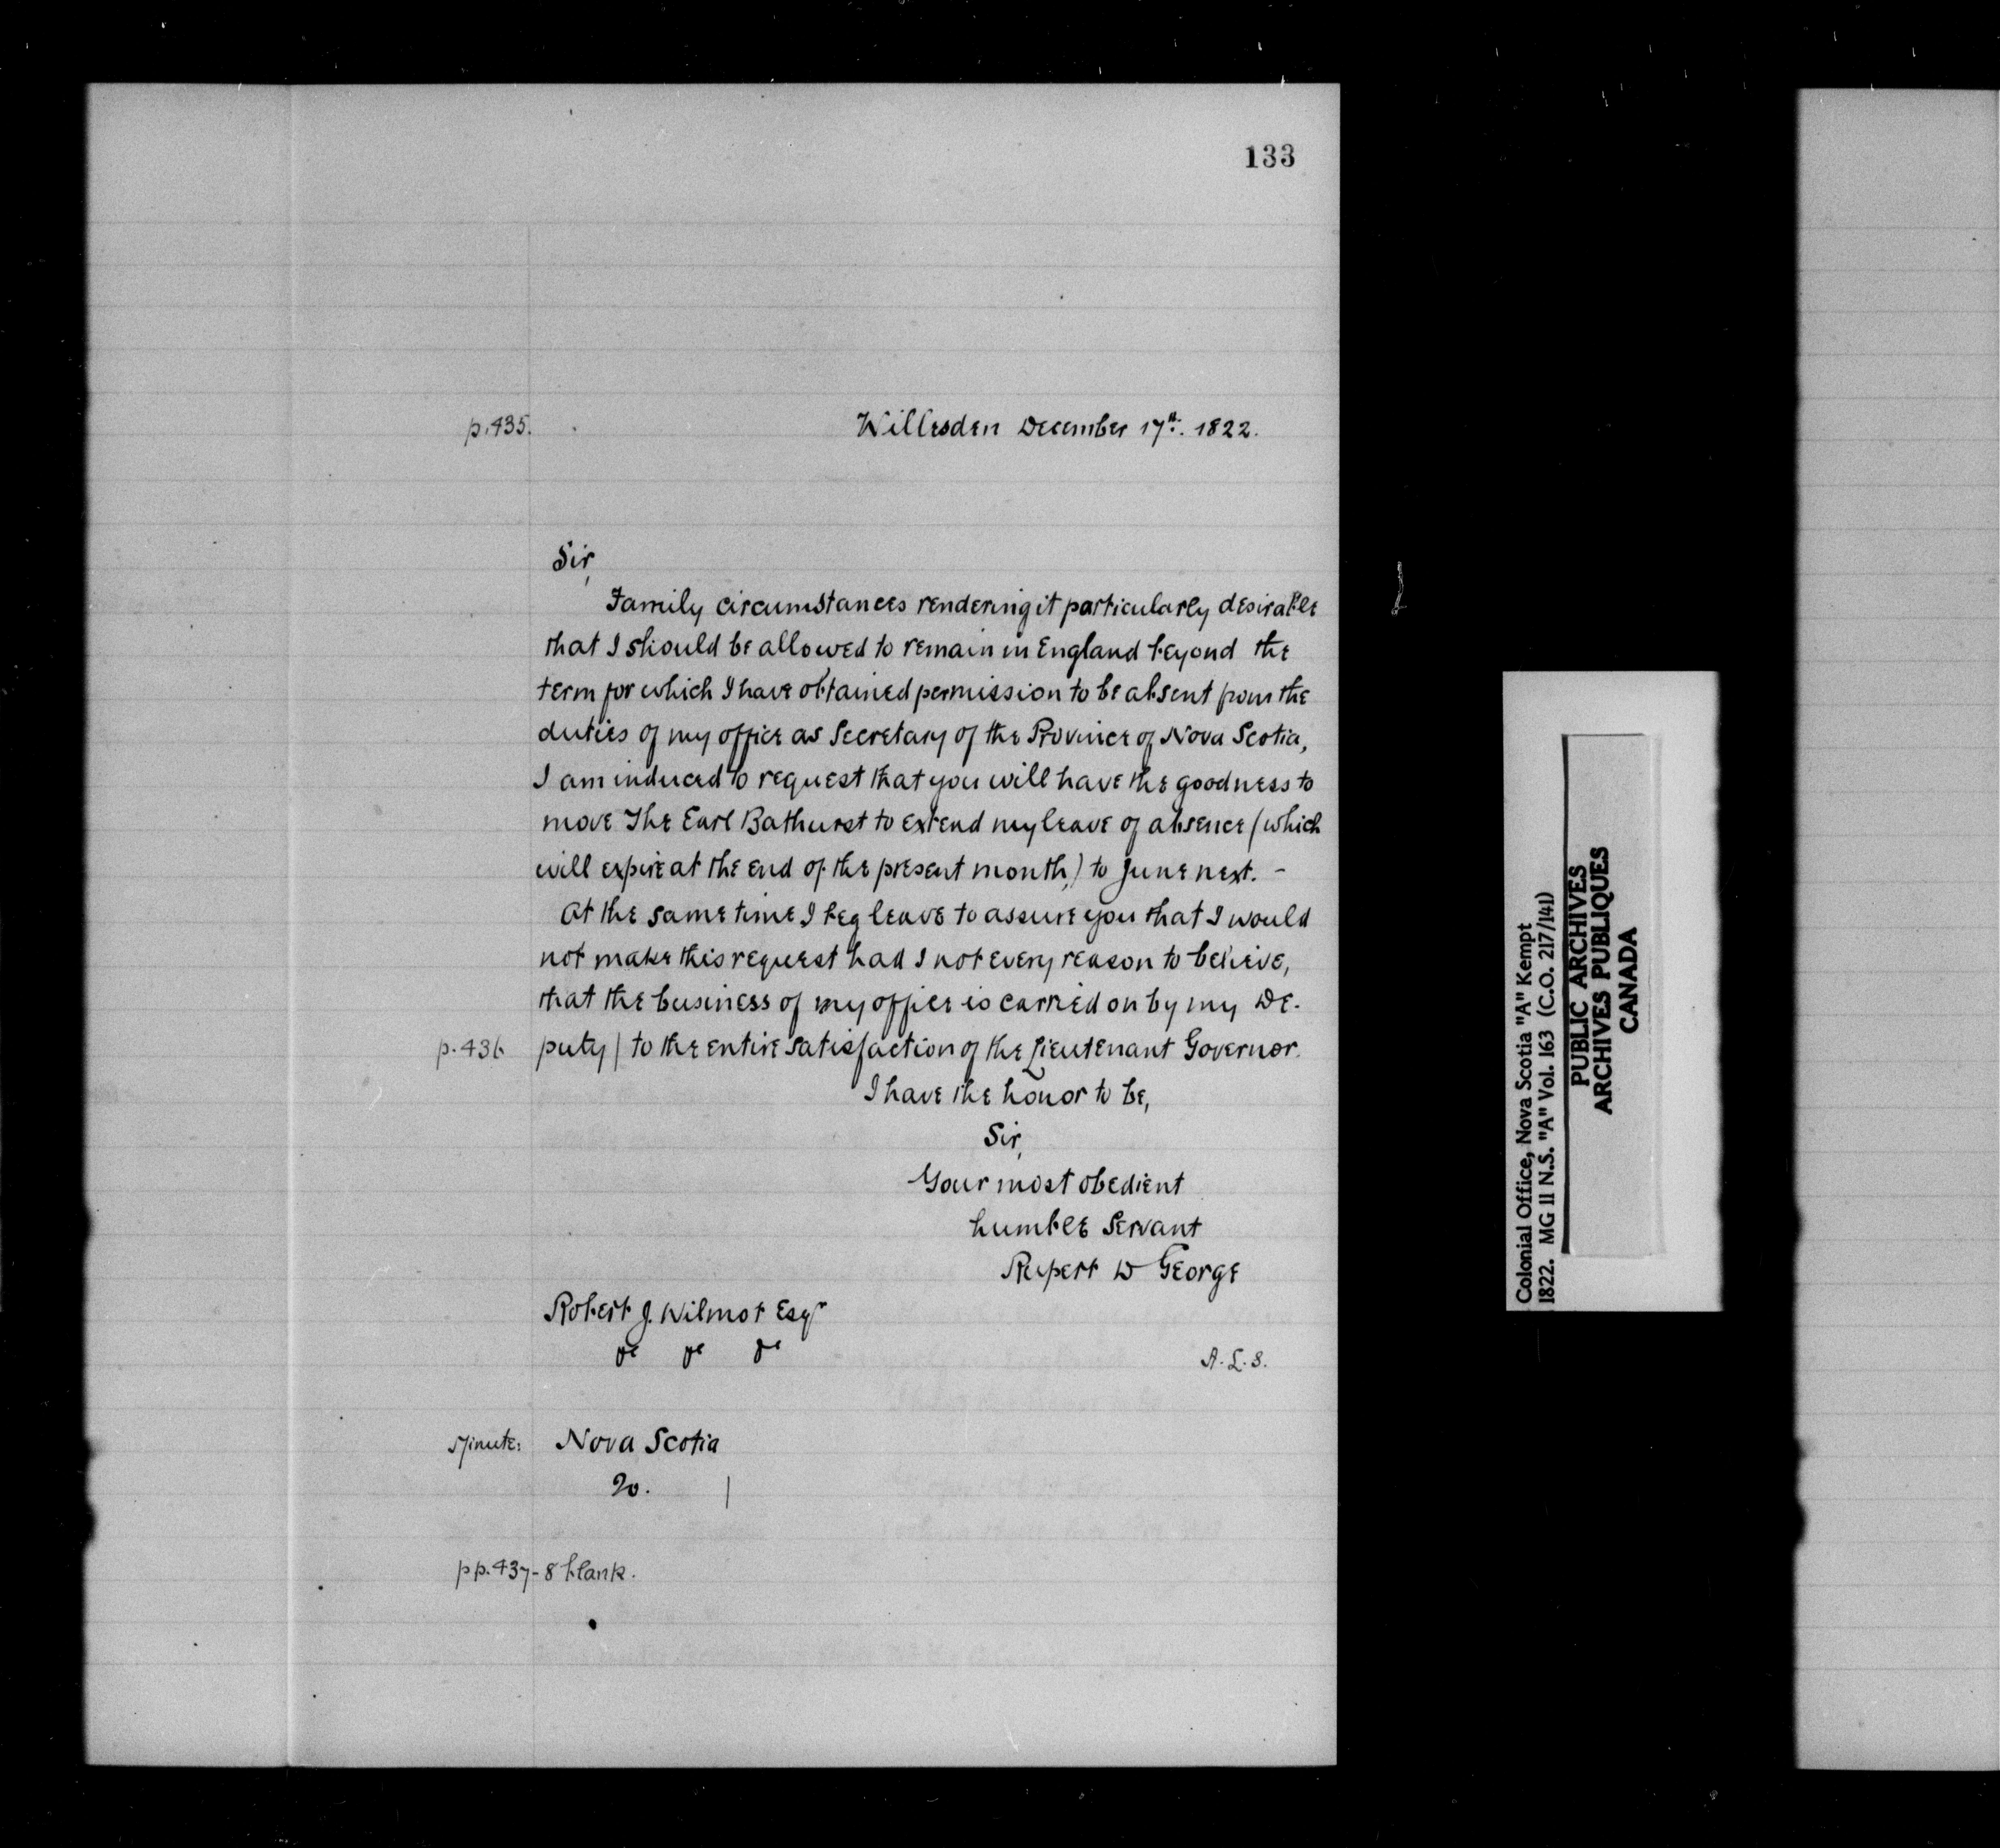 133
p.435. Willesden December 17th. 1822.
Sir,
Family circumstances rendering it particularly desirable
that I should be allowed to remain in England beyond the
term for which I have obtained permission to be absent from the
duties of my office as Secretary of the Province of Nova Scotia,
I am induced to request that you will have the goodness to
move The Earl Bathurst to extend my leave of absence (which
will expire at the end of the present month,) to June next. -
At the same time I beg leave to assure you that I would
not make this request had I not every reason to believe,
that the business of my office is carried on by my De-
p.436 puty / to the entire satisfaction of the Lieutenant Governor.
I have the honor to be,
Sir,
Your most obedient
humble Servant
Rupert D George
Robert J. Wilmot Esqr
A.L.S.
Minute: Nova Scotia
pp.437-8 blank.
Colonial Office, Nova Scotia "A" Kempt
1822. MG 11 N.S. "A" Vol. 163 (C.O. 217/141)
PUBLIC ARCHIVES
ARCHIVES PUBLIQUES
CANADA